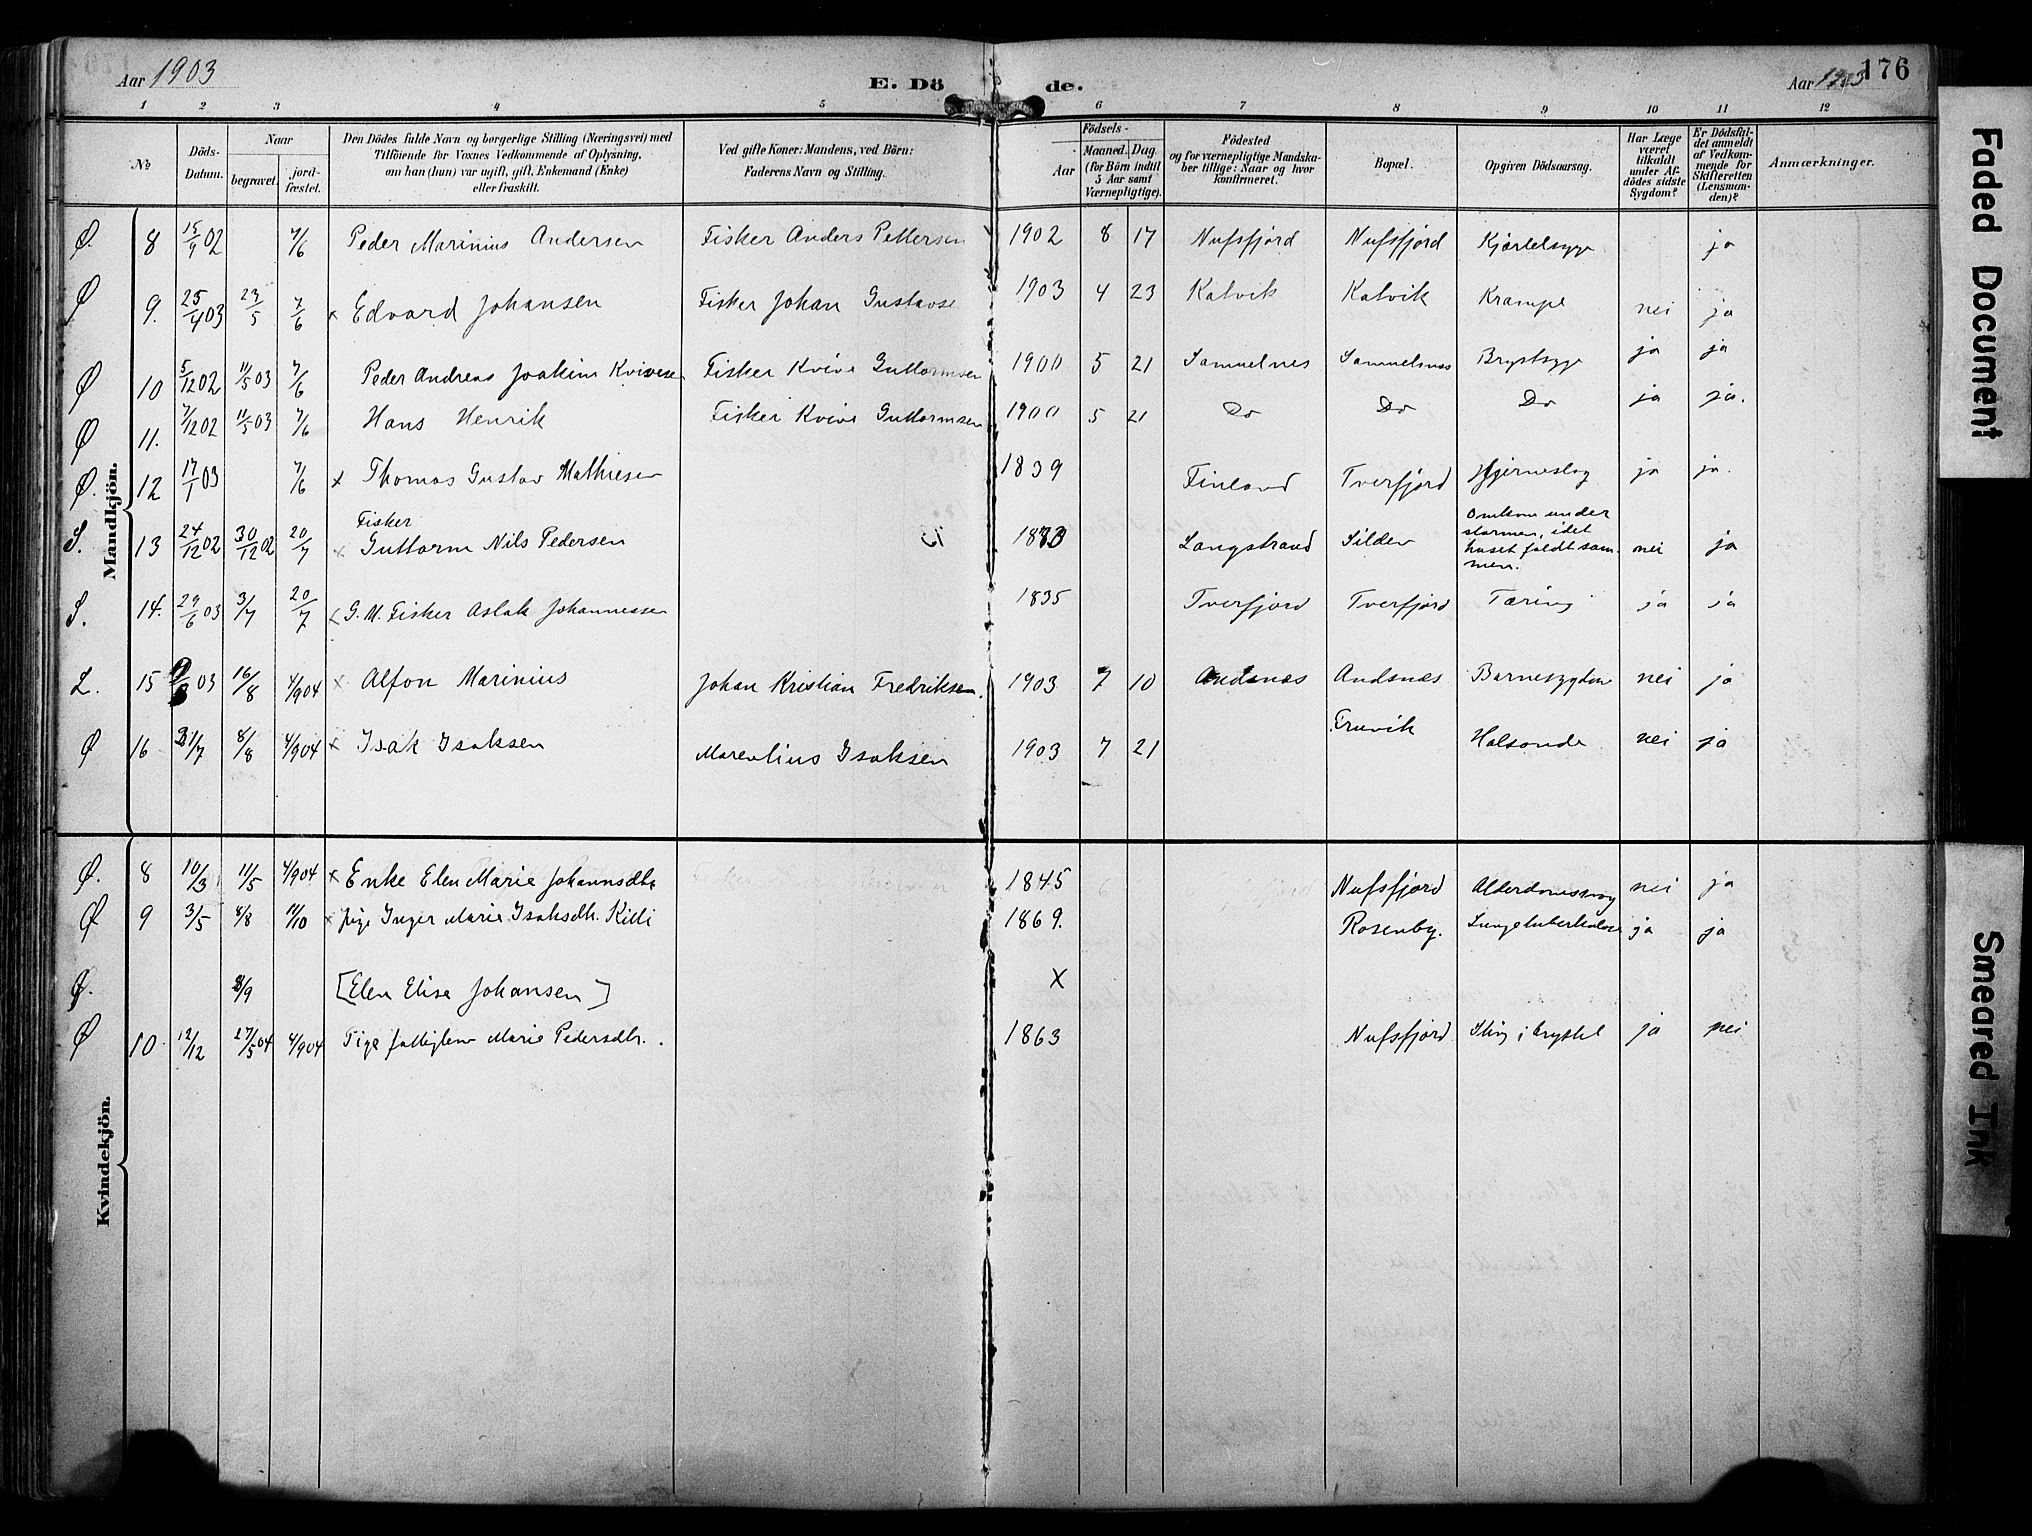 Aar 1903 E. Dö de. Aar 1903 176
1 2 3 4 5 6 7 8 9 10 11 12
№ Döds-Datum. Naar begravet. jordfæstet. Den Dödes fulde Navn og borgerlige Stilling (Næringsvei) med Tilföiende for Voxnes Vedkommende af Oplysning, om han (hun) var ugift, gift, Enkemand (Enke) eller fraskilt. Ved gifte Koner: Mandens, ved Börn: Faderens Navn og Stilling. Födsels- Aar Maaned. Dag. (for Börn indtil 5 Aar samt Værnepligtige). Födested og for værnepligtige Mandskaber tillige: Naar og hvor konfirmeret. Bopæl. Opgiven Dödsaarsag. Har Læge været tilkaldt under Afdödes sidste Sygdom? Er Dödsfaldet anmeldt af Vedkommende for Skifteretten (Lensmanden)? Anmærkninger.
Mandkjön.
Ø. 8 15/9 02 7/6 Peder Marinius Andersen Fisker Anders Pettersen 1902 8 17 Nufsfjord Nufsfjord Kjertelsyge ja
Ø 9. 25/4 03 23/5 7/6 x Edvard Johansen Fisker Johan Gustavse 1903 4 23 Kalvik Kalvik Krampe nei ja
Ø 10 5/12 02 11/5 03 7/6 Peder Andreas Joakim Kvivesen Fisker Kvive Guttormsen 1900 5 21 Samuelnes Samuelsnes Brystsyge ja ja
Ø 11. 7/12 02 11/5 03 7/6 Hans Henrik Fisker Kvive Guttormsen 1900 5 21 Do Do Do ja ja.
Ø. 12 17/1 03 7/6 x Thomas Gustav Mathiesen 1839 Finland Tverfjord Hjerneslag ja ja.
S. 13 24/12 02 30/12 02 20/7 x Fisker Guttorm Nils Pedersen Langstrand Silden Omkom under stormen, idet huset faldt sammen. nei ja
S. 14. 29/6 03 3/7 20/7 G.M. Fisker Aslak Johannessen 1835 Tverfjord Tverfjord Tæring ja ja
L. 15 03 16/8 4/9 04 x Alfon Marinius Johan Kristian Fredriksen. 1903 7 10 Andsnæs Andsnæs Barnesygdom nei ja
Ø 16 31/7 8/8 4/9 04 x Isak Isaksen Marentius Isaksen 1903 7 21 Fruvik Halsonde nei ja
Kvindekjön.
Ø. 8 10/3 11/5 4/9 04 x Enke Elen Marie Johannsdtr 1845 Nufsfjord nei ja
Ø 9 3/5 8/8 11/10 x Pige Inger Marie Isaksdtr. Kitti 1869. Rosenby. Lungetuberkulose ja ja
Ø. 8/9 [Elen Elise Johansen] x
Ø 10 12/12 27/5 04 4/9 04 Pige fattiglem Marie Pedersdtr. 1863 Nufsfjord Sting i brystet ja nei
Faded Document
Smeared Ink